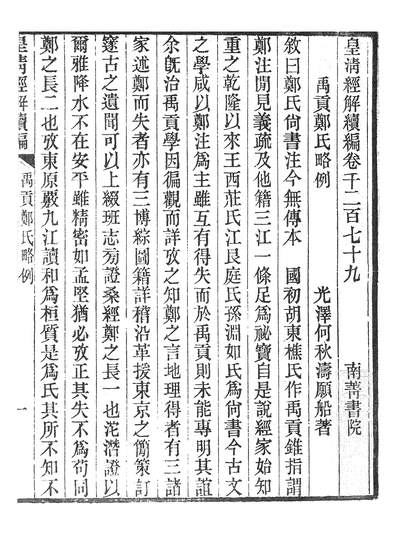 皇淸經解續編卷千二百七十九　南菁書院
禹貢鄭氏略例　光澤何秋濤願船著
敘曰鄭氏尙書注今無傳本　國初胡東樵氏作禹貢錐指謂
鄭注閒見義疏及他籍三江一條足爲祕寶自是說經家始知
重之乾隆以來王西莊氏江艮庭氏孫淵如氏爲尙書今古文
之學咸以鄭注爲主雖互有得失而於禹貢則未能專明其誼
余旣治禹貢學因徧觀而詳攷之知鄭之言地理得者有三諸
家述鄭而失者亦有三博綜圖籍詳稽沿革援東京之簡策訂
邃古之遺聞可以上綴班志旁證桑經鄭之長一也沱潛證以
爾雅降水不在安平雖精密如孟堅猶必攷正其失不爲苟同
鄭之長二也攷東原覈九江讀和爲桓質是爲氏其所不知不
皇淸經解續編
禹貢鄭氏略例
一